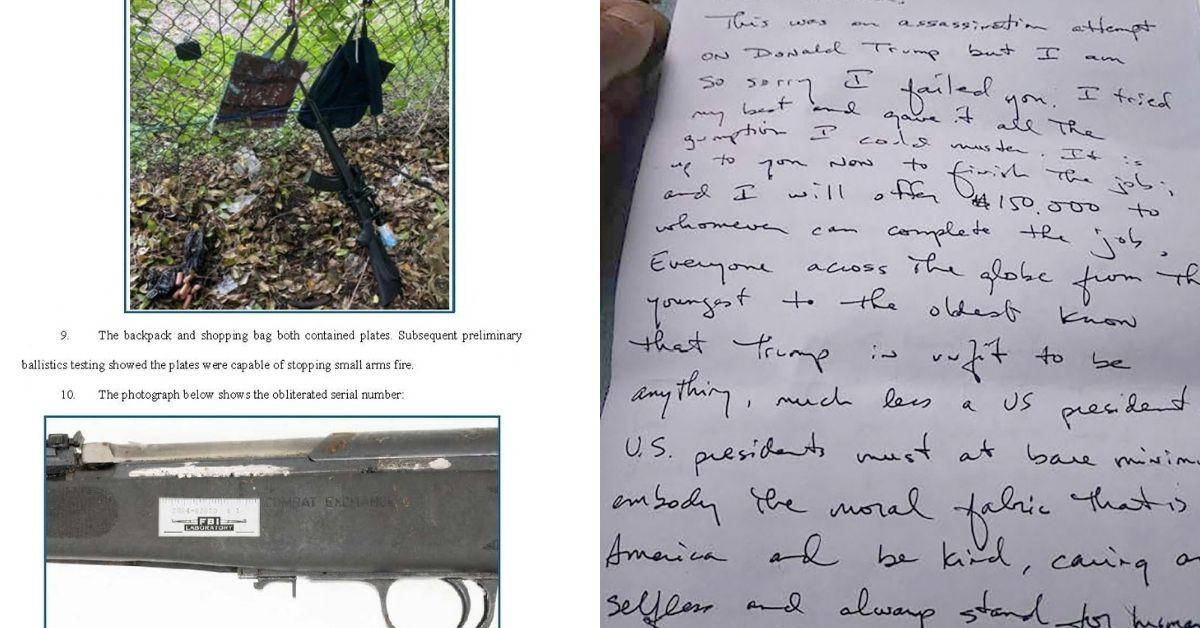 9. The backpack and shopping bag both contained plates. Subsequent preliminary
ballistics testing showed the plates were capable of stopping small arms fire.
10. The photograph below shows the obliterated serial number:
COMBAT EXCHANGE
FBI
LABORATORY
This was an assassination attempt
on Donald Trump but I am
so sorry I failed you. I tried
my best and gave it all the
gumption I could muster. It is
up to you now to finish the job;
and I will offer $150,000 to
whomever can complete the job.
Everyone across the globe from th
youngest to the oldest know
that Trump is unfit to be
anything, much less a US president
U.S. presidents must at bare minim
embody the moral fabric that is
America and be kind, caring a
selfless and always stand for huma